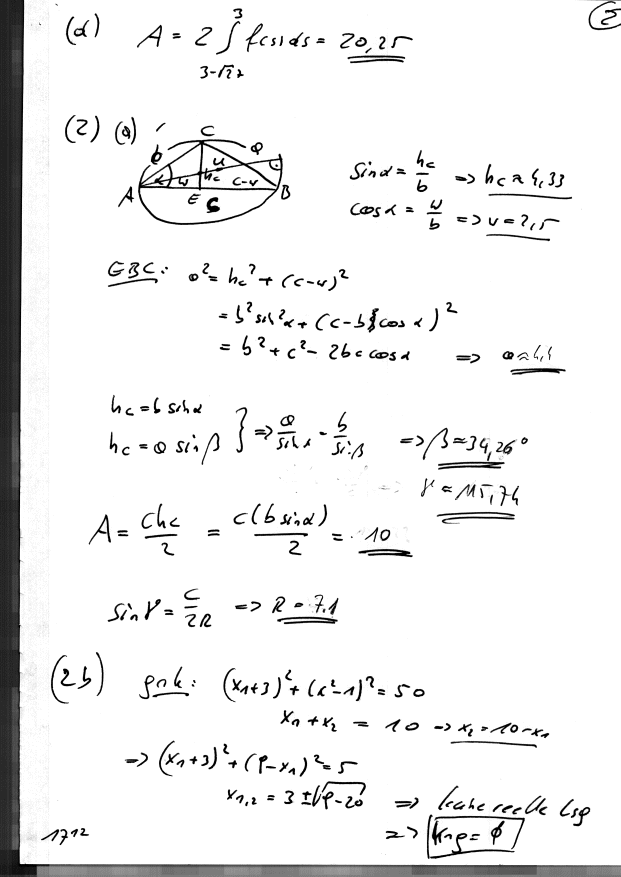 (d) A = 2 ∫ f(s)ds = 20,25
3
3-√22
(2) (a)
C
b a
α u hc
A u E c c-u B
sinα = hc/b => hc ≈ 4,33
cosα = u/b => u = 2,5
EBC: a² = hc² + (c-u)²
= b² sin²α + (c-b cos α)²
= b² + c² - 2bc cosα => a ≈ 4,4
hc = b sinα
hc = a sinβ } => a/sinα = b/sinβ => β ≈ 34,26°
γ ≈ 115,74
A = chc/2 = c(b sinα)/2 = 10
sinγ = c/2R => R = 7.1
(2b) gnk: (x1+3)² + (x²-1)² = 50
x1 + x2 = 10 -> x2 = 10-x1
=> (x1+3)² + (9-x1)² = 5
x1,2 = 3 ± √9-20 => keine reelle Lsg
=> kng = ∅
1712